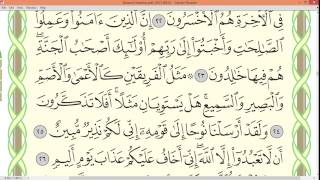 فِي ٱلْأَخِرَةِ هُمُ ٱلْأَخْسَرُونَ ٢٢ إِنَّ ٱلَّذِينَ ءَامَنُوا۟ وَعَمِلُوا۟
ٱلصَّٰلِحَٰتِ وَأَخْبَتُوٓا۟ إِلَىٰ رَبِّهِمْ أُو۟لَٰٓئِكَ أَصْحَٰبُ ٱلْجَنَّةِ ۖ
هُمْ فِيهَا خَٰلِدُونَ ٢٣ ۞ مَثَلُ ٱلْفَرِيقَيْنِ كَٱلْأَعْمَىٰ وَٱلْأَصَمِّ
وَٱلْبَصِيرِ وَٱلسَّمِيعِ ۚ هَلْ يَسْتَوِيَانِ مَثَلًا ۚ أَفَلَا تَذَكَّرُونَ
٢٤ وَلَقَدْ أَرْسَلْنَا نُوحًا إِلَىٰ قَوْمِهِۦٓ إِنِّي لَكُمْ نَذِيرٌ مُّبِينٌ ٢٥
أَن لَّا تَعْبُدُوٓا۟ إِلَّا ٱللَّهَ ۖ إِنِّيٓ أَخَافُ عَلَيْكُمْ عَذَابَ يَوْمٍ أَلِيمٍ ٢٦